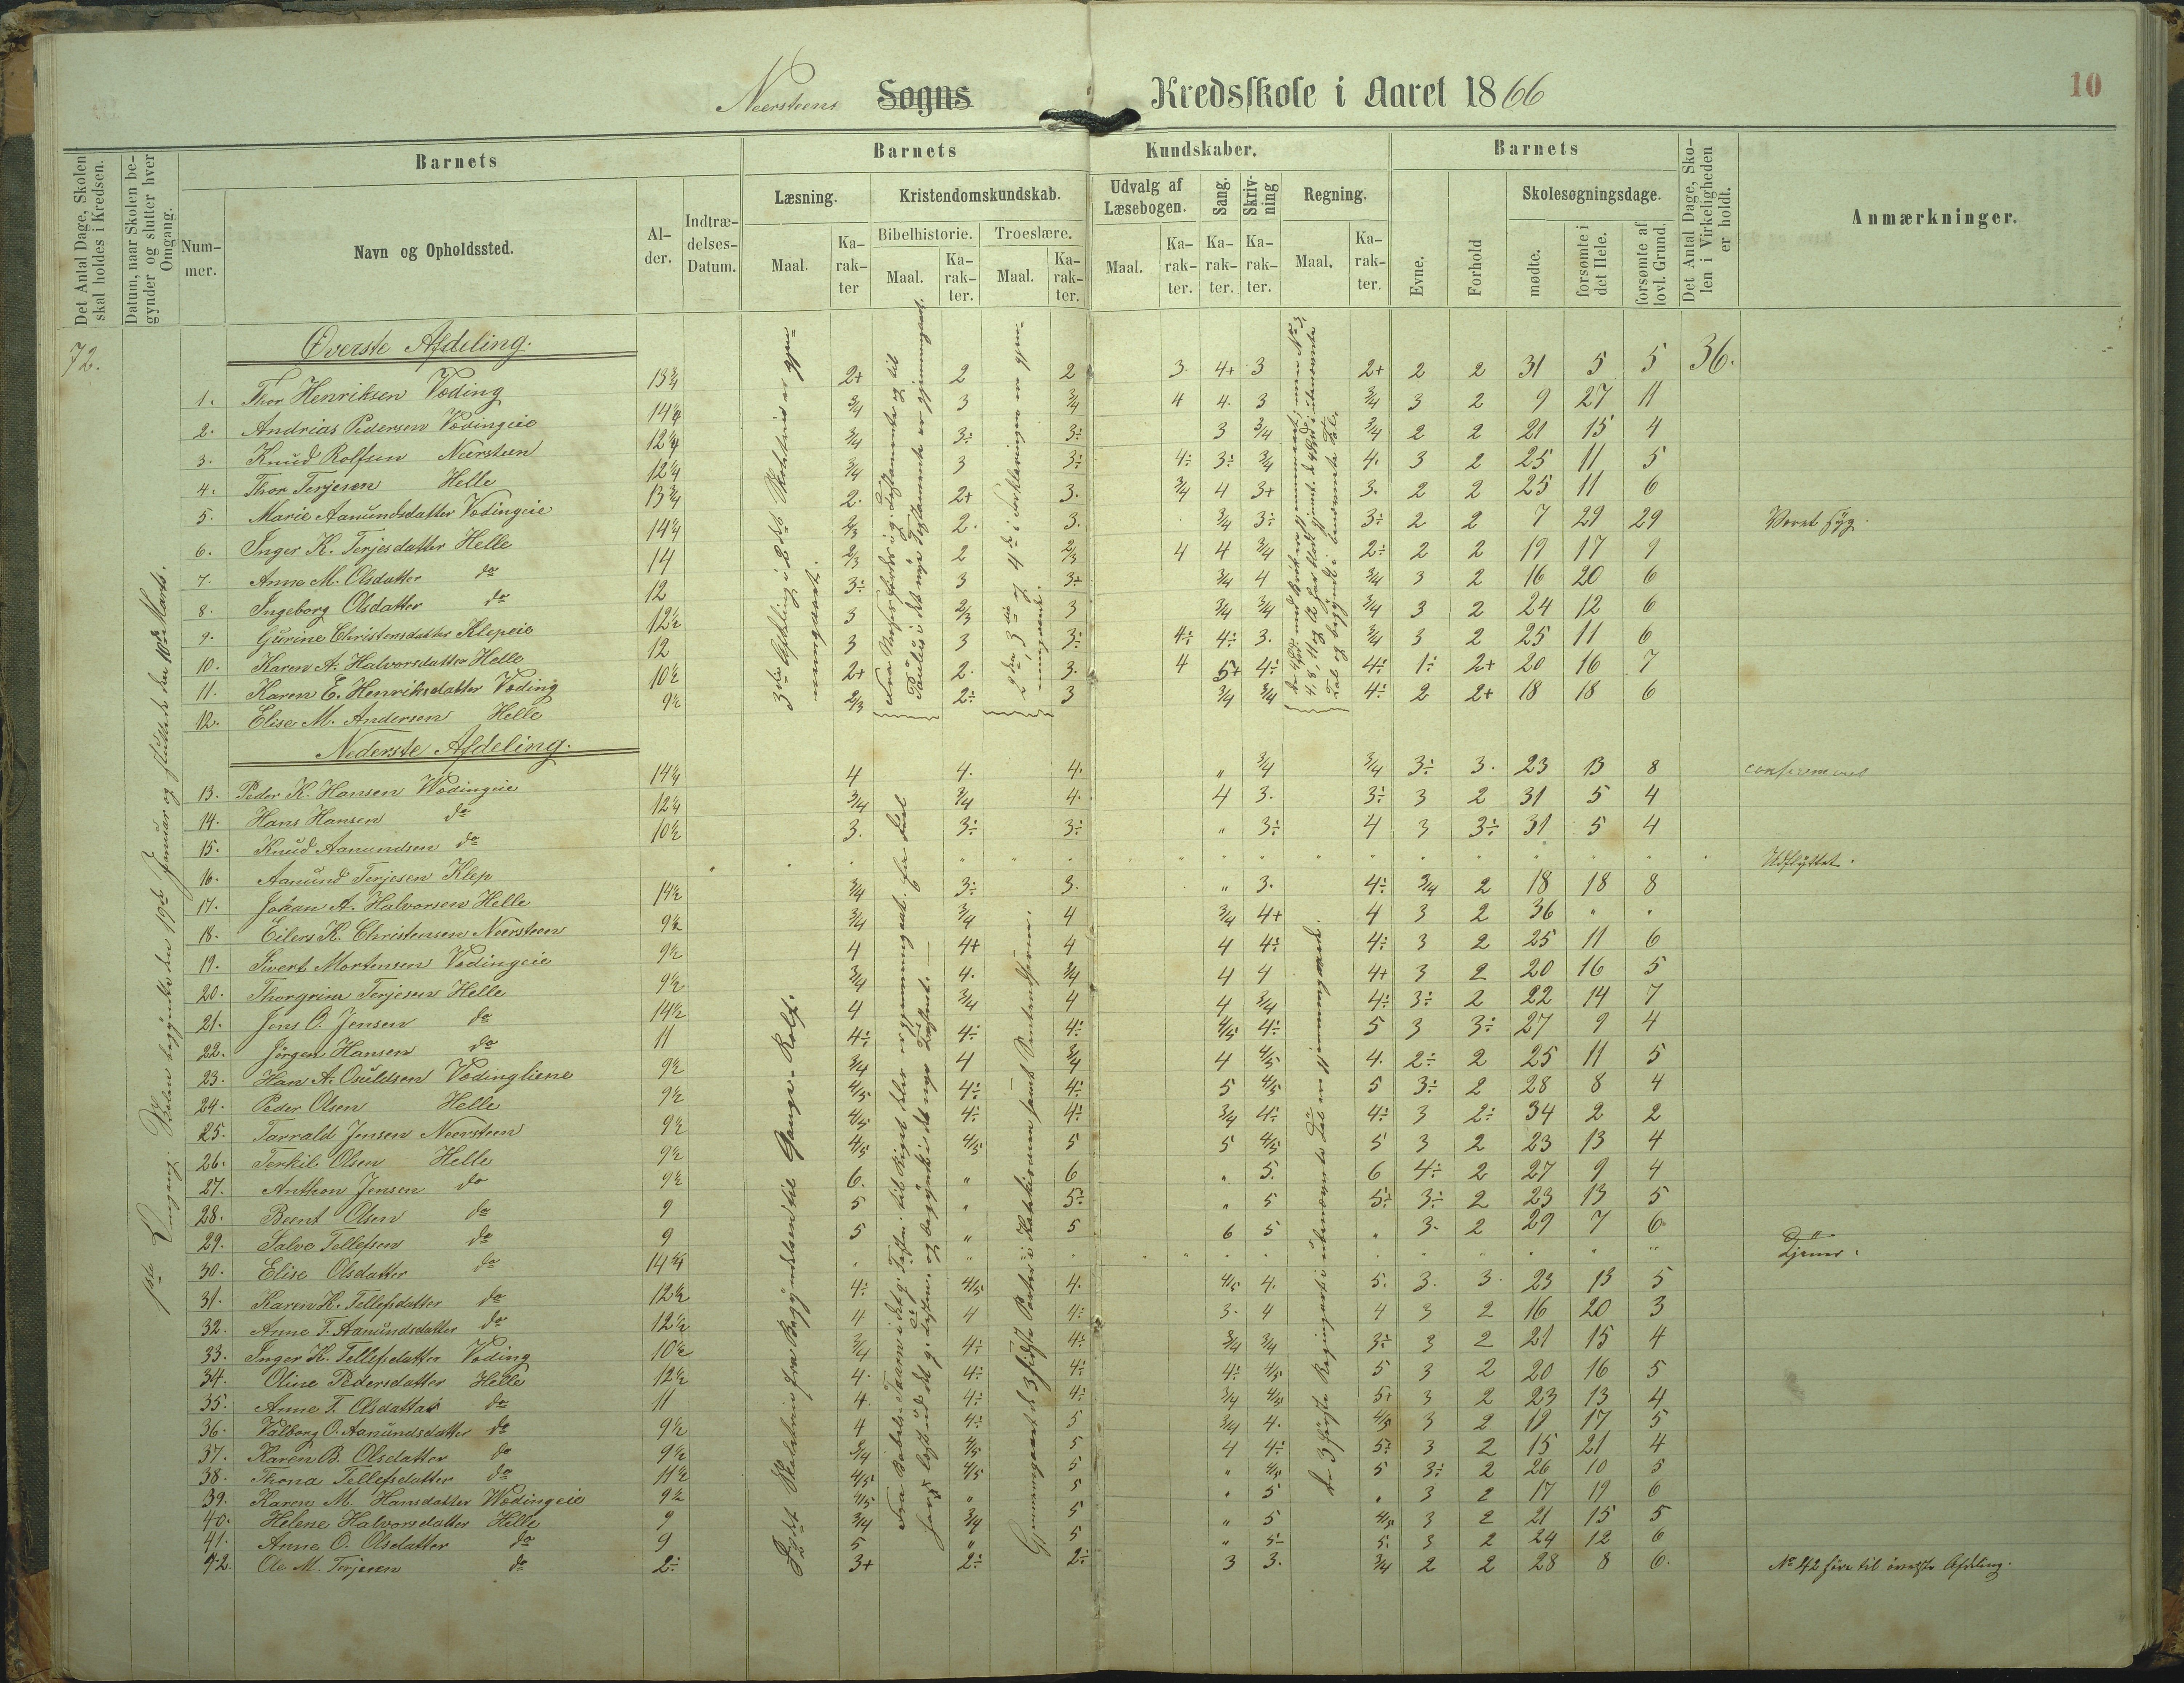 Neersteens Sogns Kredsskole i Aaret 1866
10
Det Antal Dage, Skolen skal holdes i Kredsen.
Datum, naar Skolen begynder og slutter hver Omgang.
Barnets
Nummer.
Navn og Opholdssted.
Alder.
Indtrædelses-Datum.
Barnets Kundskaber.
Læsning.
Maal.
Karakter
Kristendomskundskab.
Bibelhistorie.
Maal.
Karakter.
Troeslære.
Maal.
Karakter.
Udvalg af Læsebogen.
Maal.
Karakter.
Sang.
Karakter.
Skrivning
Karakter.
Regning.
Maal.
Karakter.
Barnets
Evne.
Forhold
Skolesøgningsdage.
mødte.
forsømte i det Hele.
forsømte af lovl. Grund.
Det Antal Dage, Skolen i Virkeligheden er holdt.
Anmærkninger.
72.
Øverste Afdeling.
36.
1. Thor Henriksen Vøding 13 3/4 2+ 2 2 3 4+ 3 2+ 2 2 31 5 5
2. Andrias Pedersen Vødingeie 14 1/4 3/4 3 3/4 4 4. 3 3/4 3 2 9 27 11
3. Knud Rolfsen Neersteen 12 1/4 3/4 3÷ 3÷ 3 3/4 3/4 2 2 21 15 4
4. Thor Terjesen Helle 12 1/4 3/4 3 3÷ 4÷ 3÷ 3/4 4. 3 2 25 11 5
5. Marie Aanundsdatter Vødingeie 13 3/4 2. 2+ 3. 3/4 4 3+ 3. 2 2 25 11 6
6. Inger K. Terjesdatter Helle 14 1/4 2/3 2. 3. 3/4 3÷ 3÷ 2 2 7 29 29 Været syg.
7. Anne M. Olsdatter do 14 2/3 2 2/3 4 4 3/4 2÷ 2 2 19 17 9
8. Ingeborg Olsdatter do 12 3÷ 3 3+ 3/4 4 3/4 3 2 16 20 6
9. Gurine Christensdatter Klepeie 12 1/2 3 2/3 3 3/4 3/4 3/4 3 2 24 12 6
10. Karen A. Halvorsdatter Helle 12 3 3 3÷ 4÷ 4÷ 3. 3/4 3 2 25 11 6
11. Karen E. Henriksdatter Vøding 10 1/2 2+ 2. 3. 4 5+ 4÷ 4÷ 1÷ 2+ 20 16 7
12. Elise M. Andersen Helle 9 1/2 2/3 2÷ 3 3/4 3/4 4÷ 2 2+ 18 18 6
Nederste Afdeling.
13. Peder K. Hansen Wødingeie 14 1/4 4 4. 4. " 3/4 3/4 3÷ 3. 23 13 8 confirmeret
14. Hans Hansen do 12 1/4 3/4 3/4 4. 4 3. 3÷ 3 2 31 5 4
15. Knud Aanundsen do 10 1/2 3. 3÷ 3÷ " 3÷ 4 3 3÷ 31 5 4
16. Aanund Terjesen Klep Udflyttet.
17. Johan A. Halvorsen Helle 14 1/2 3/4 3÷ 3. " 3. 4÷ 3/4 2 18 18 8
18. Eilers K. Christensen Neersteen 9 1/2 3/4 3/4 4 3/4 4+ 4 3 2 36 " "
19. Sivert Mortensen Vødingeie 9 1/2 4 4+ 4 4 4÷ 4÷ 3 2 25 11 6
20. Thorgrim Terjesen Helle 9 1/2 3/4 4. 3/4 4 4 4+ 3 2 20 16 5
21. Jens O. Jensen do 14 1/2 4 3/4 4 4 3/4 4÷ 3÷ 2 22 14 7
22. Jørgen Hansen do 11 4÷ 4÷ 4÷ 4/5 4÷ 5 3 3÷ 27 9 4
23. Han A. Osuldsen Vødingliene 9 1/2 3/4 4 3/4 4 4/5 4. 2÷ 2 25 11 5
24. Peder Olsen Helle 9 1/2 4/5 4÷ 4÷ 5 4/5 5 3÷ 2 28 8 4
25. Tarrald Jensen Neersteen 9 1/2 4/5 4÷ 4÷ 3/4 4÷ 4÷ 3 2÷ 34 2 2
26. Terkil Olsen Helle 9 1/2 4/5 4/5 5 5 4/5 5 3 2 23 13 4
27. Anthon Jensen do 9 1/2 6. " 6 " 5. 6 4÷ 2 27 9 4
28. Beent Olsen do 9 5 " 5÷ " 5 5÷ 3÷ 2 23 13 5
29. Salve Tellefsen do 9 5 " 5 6 5 " 3. 2 29 7 6
30. Elise Olsdatter do 14 3/4 Tjener.
31. Karen K. Tellefsdatter do 12 1/2 4÷ 4/5 4. 4/5 4. 5. 3. 3. 23 13 5
32. Anne T. Aanundsdatter do 12 1/2 4 4 4÷ 3. 4 4 3 2 16 20 3
33. Inger K. Tellefsdatter Vøding 10 1/2 3/4 4÷ 4÷ 3/4 3/4 3÷ 3 2 21 15 4
34. Oline Pedersdatter Helle 12 1/2 4. 4÷ 4÷ 4÷ 4/5 5 3 2 20 16 5
35. Anne T. Olsdatter do 11 4. 4÷ 4÷ 3/4 4/5 5+ 3 2 23 13 4
36. Valborg O. Aanundsdatter do 9 1/2 4 4÷ 5 3/4 4. 4/5 3 2 19 17 5
37. Karen B. Olsdatter do 9 1/2 3/4 4/5 5 4 4÷ 5÷ 3 2 15 21 4
38. Thona Tellefsdatter do 11 1/2 4/5 4/5 5 " 4/5 5 3÷ 2 26 10 5
39. Karen M. Hansdatter Wødingeie 9 1/2 4/5 " 5 " 5 " 3 2 17 19 6
40. Helene Halvorsdatter Helle 9 3/4 3/4 5 " 5 4/5 3 2 21 15 5
41. Anne O. Olsdatter do 9 5 " 5 " 5÷ 5. 3 2 24 12 6
42. Ole M. Terjesen do 2÷ 3+ 2÷ 2÷ 3 3. 3/4 2 2 28 8 6. No 42 hører til øverste Afdeling.
1ste Omgang. Skolen begyndte den 19de Januar og sluttede den 10de Marts.
3die Afdeling i 2det Skoletrin er gjennemgaaet.
2den, 3die og 4de i Forklaringen er gjennemgaaet.
Gjennemgaaet de 3 sidste Parter i Katekismen samt Sententserne.
De 3 første Regningsarter i ubenævnte Tal er gjennemgaaet.